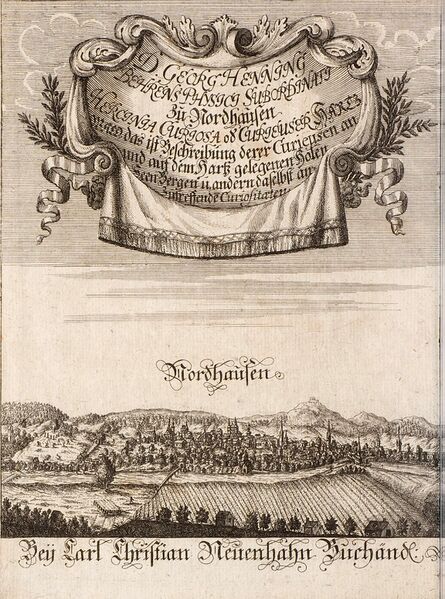 D. GEORG HENNING
BEHRENS PHYSICI SUBORDINATI
Zu Nordhausen
HERCYNIA CURIOSA oð CURIEUSER HARTZ
Wald das ist Beschreibung derer Curieusen an
und auf dem Hartz gelegenen Hölen
Seen Bergen u. andern daselbst an
zutreffende Curiositaten
Nordhausen
Beÿ Carl Christian Neuenhahn Buchändl: